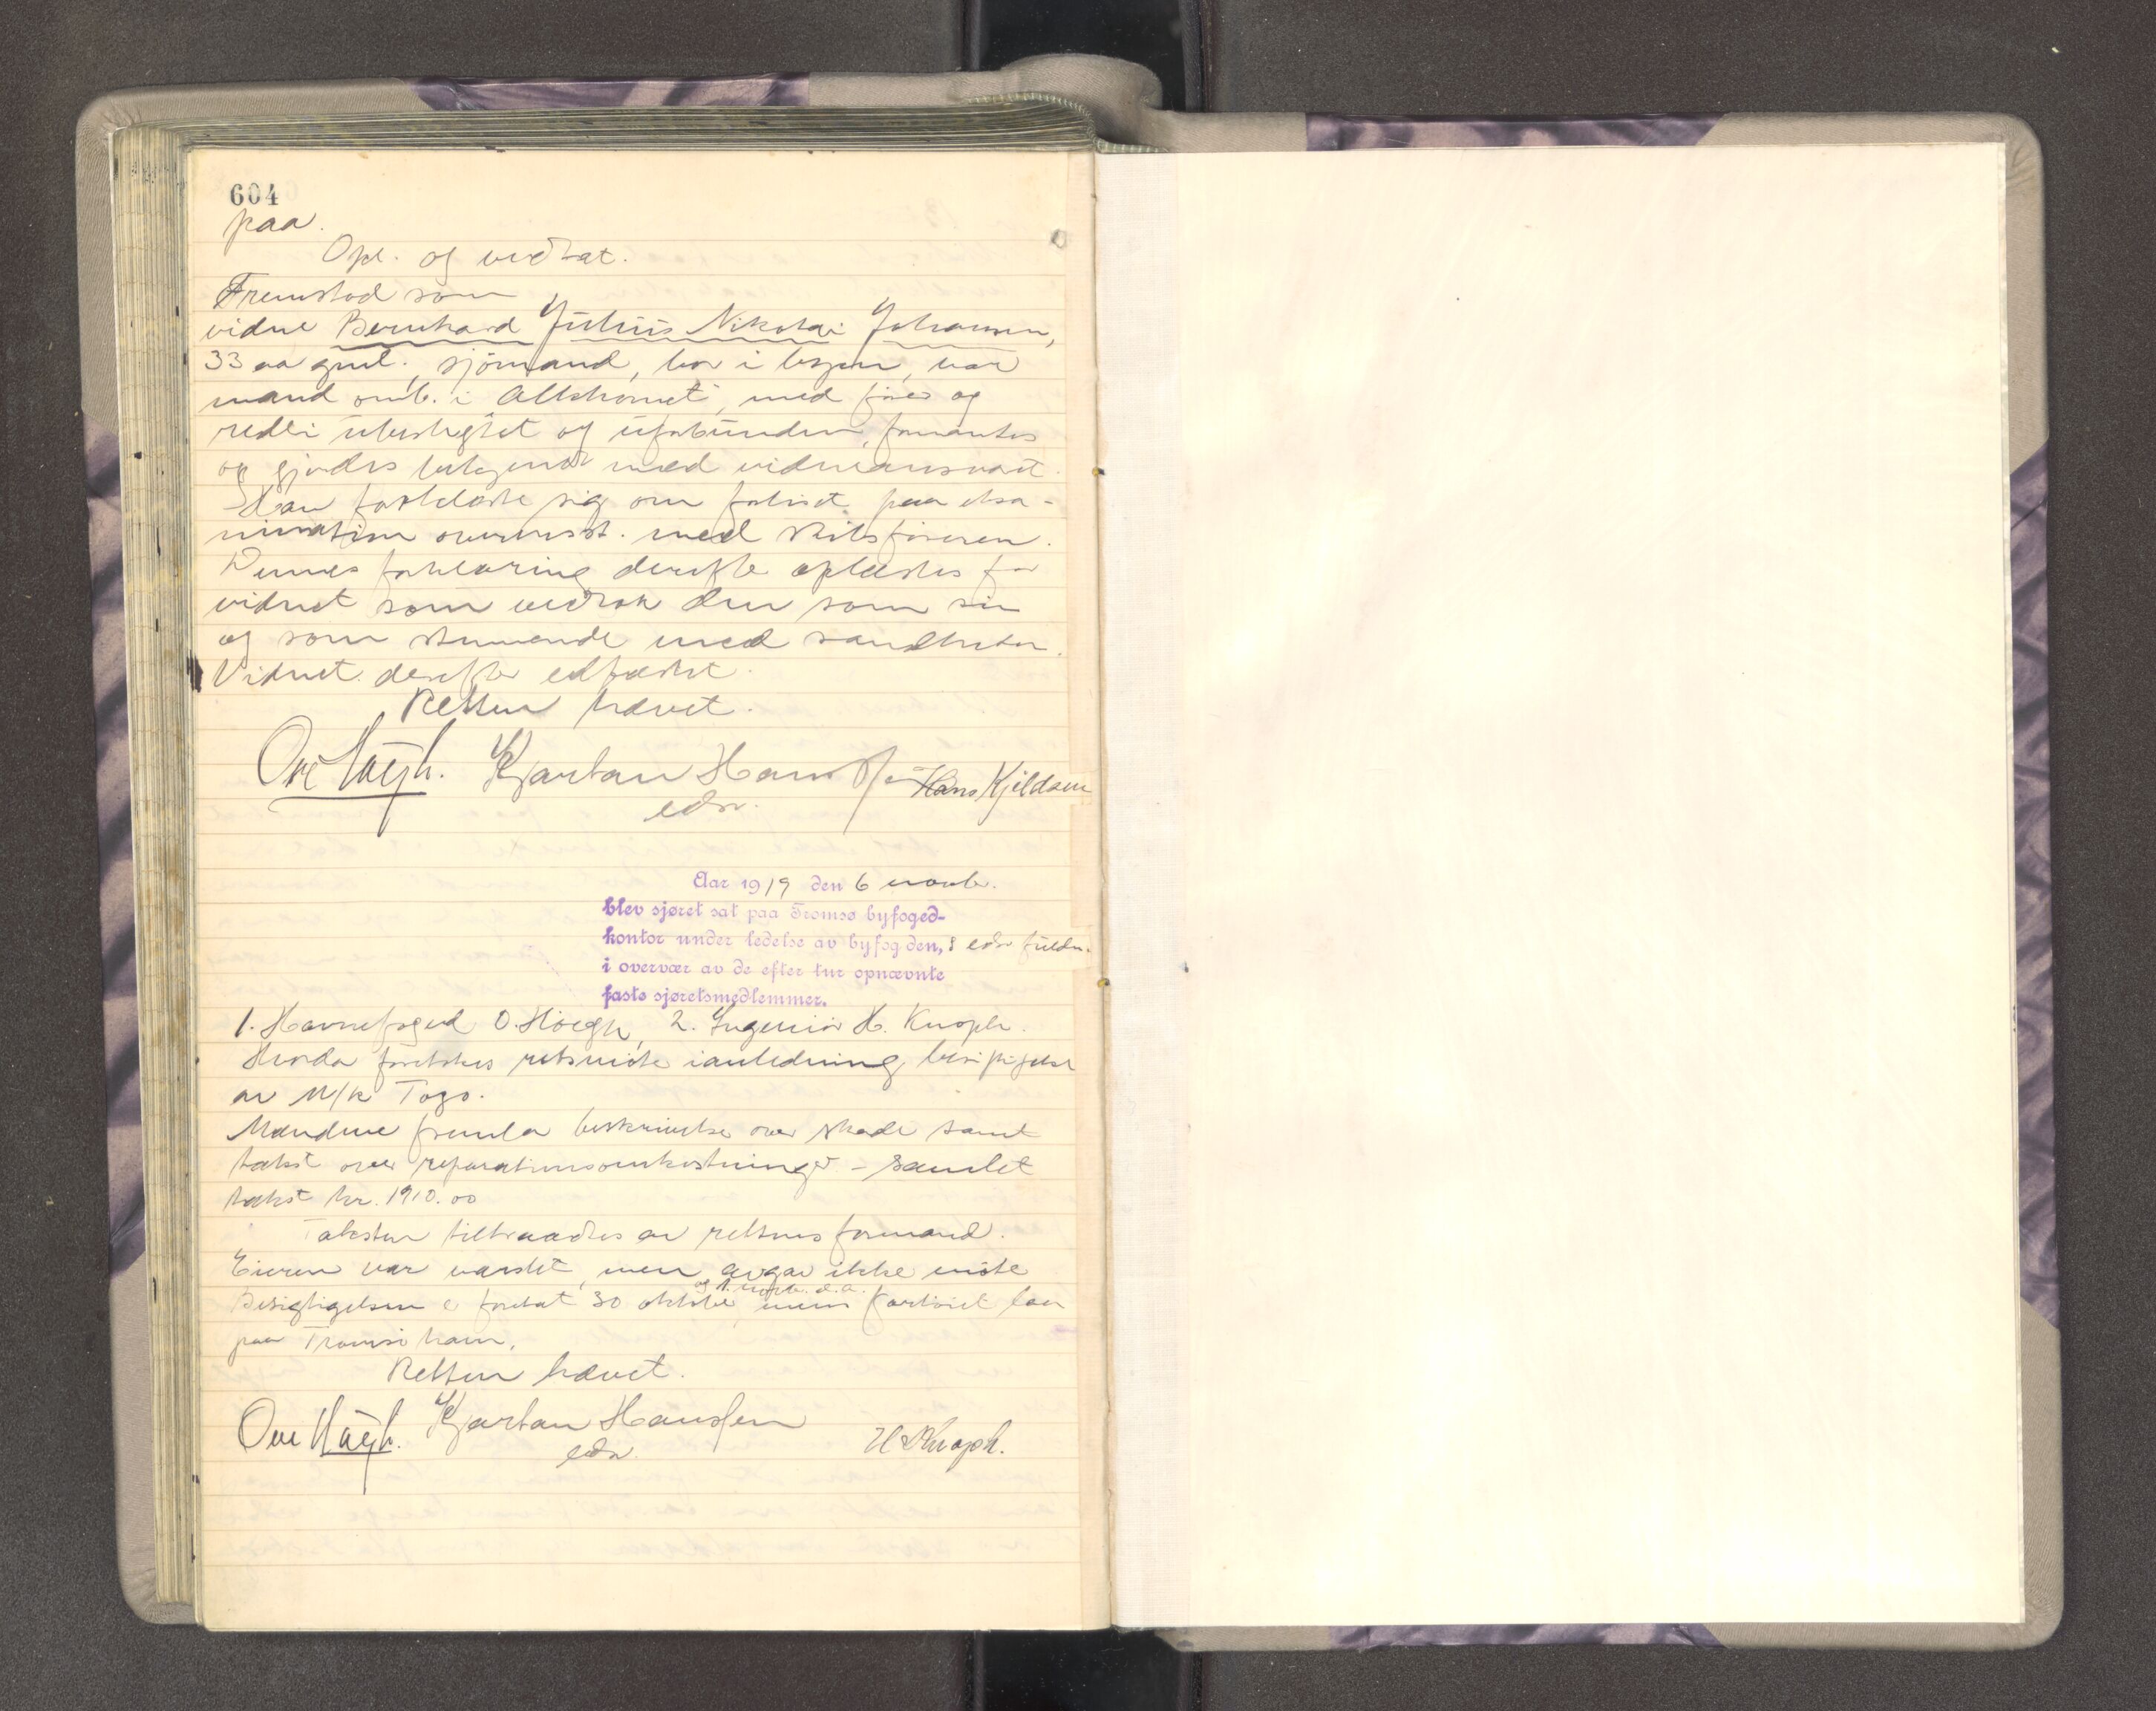 604
paa.
Opl. og vedtat.
Fremstod som
vidne Bernhard Julius Nikolai Johansen,
33 aa gml., sjömand, bor i byen, var
mand omb. i Altströmet, med fører og
rederi ubeslegtet og uforbunden, formantes
og gjordes bekjendt med vidneansvaret.
Han forklarte sig om forliset paa eksa-
mination overensst. med skibsføreren.
Dennes forklaring derefter oplæstes for
vidnet som vedtok den som sin
og som stemmende med sandheten.
Vidnet derefter edfæstet.
Retten hævet.
Ove Høegh. Kjartan Hanssen Hans Kjeldsen
edsv.
Aar 1919 den 6 novbr.
blev sjøret sat paa Tromsø byfoged-
kontor under ledelse av byfogden, edsv fuldm.
i overvær av de efter tur opnævnte
faste sjøretsmedlemmer.
1. Havnefoged O. Höegh, 2. Ingeniør H. Knoph.
Hvorda foretokes retsmöte i anledning besigtigelse
av M/k Togo.
Mændene fremla beskrivelse over skade samt
takst over reparationsomkostninger - samlet
takst kr. 1910.00
Taksten tiltraadtes av rettens formand.
Eieren var varslet, men avgav ikke möte
og 1. novbr. d.a.
Besigtigelsen er foretat 30 oktober mens fartöiet laa
paa Tromsö havn.
Retten hævet.
Ove Høegh. Kjartan Hanssen H Knoph.
edsv.